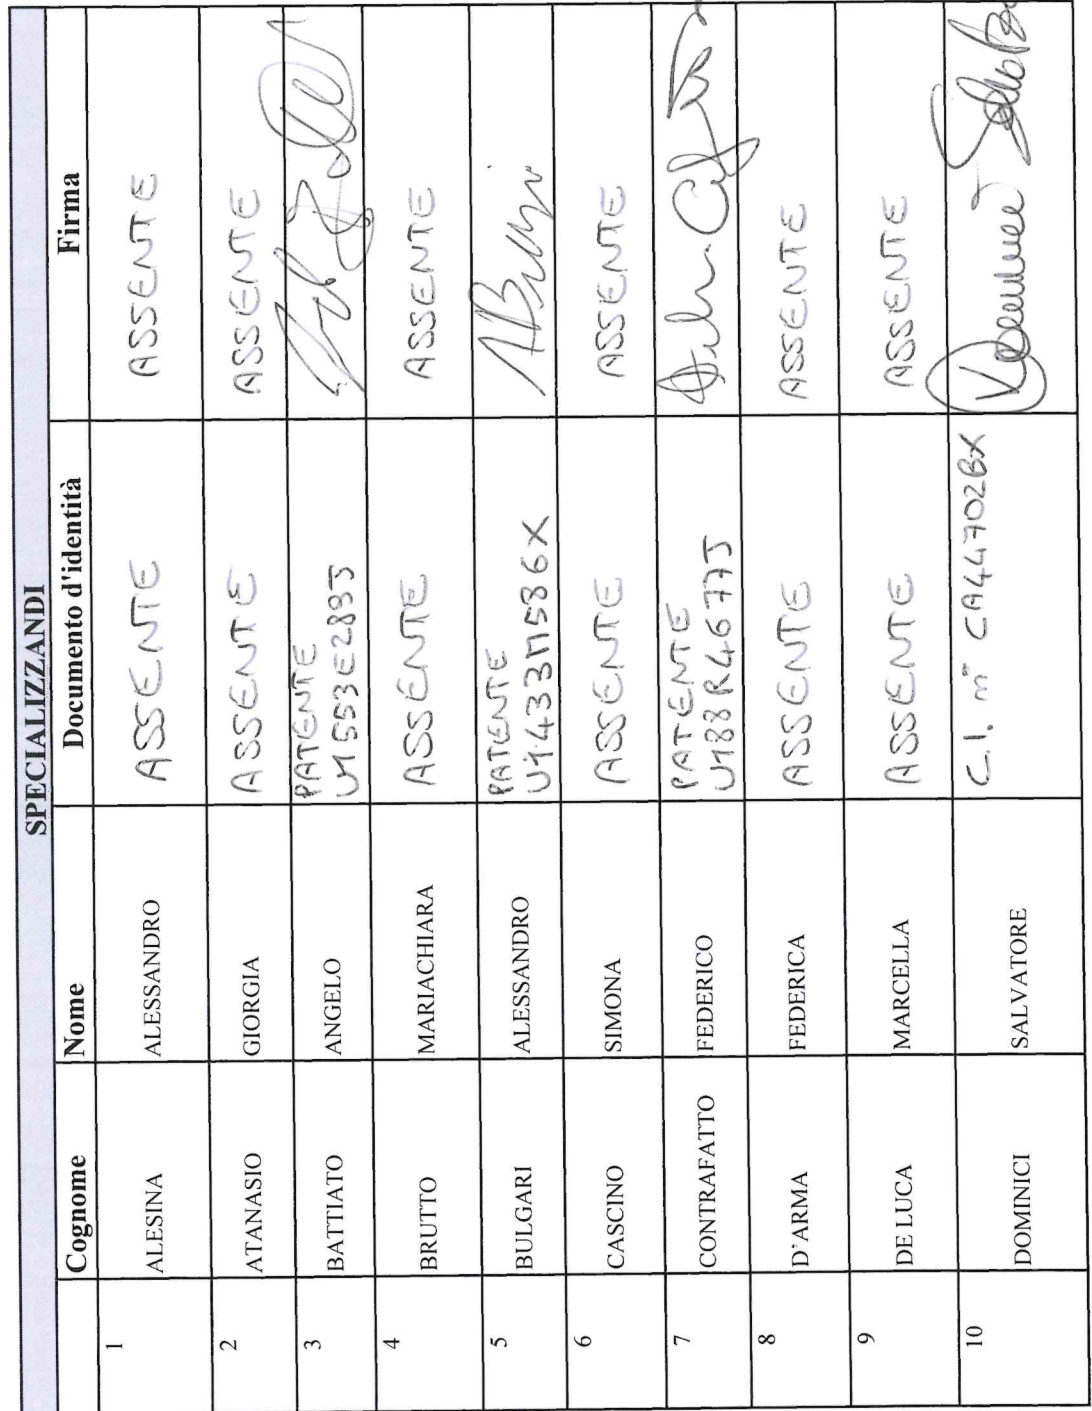 SPECIALIZZANDI
Cognome Nome Documento d'identità Firma
1 ALESINA ALESSANDRO ASSENTE ASSENTE
2 ATANASIO GIORGIA ASSENTE ASSENTE
3 BATTIATO ANGELO PATENTE
U1553E2893J
4 BRUTTO MARIACHIARA ASSENTE ASSENTE
5 BULGARI ALESSANDRO PATENTE ABulgari
U1433M586X
6 CASCINO SIMONA ASSENTE ASSENTE
7 CONTRAFATTO FEDERICO PATENTE
U188R4677J
8 D'ARMA FEDERICA ASSENTE ASSENTE
9 DE LUCA MARCELLA ASSENTE ASSENTE
10 DOMINICI SALVATORE C.I. n° CA44702BX